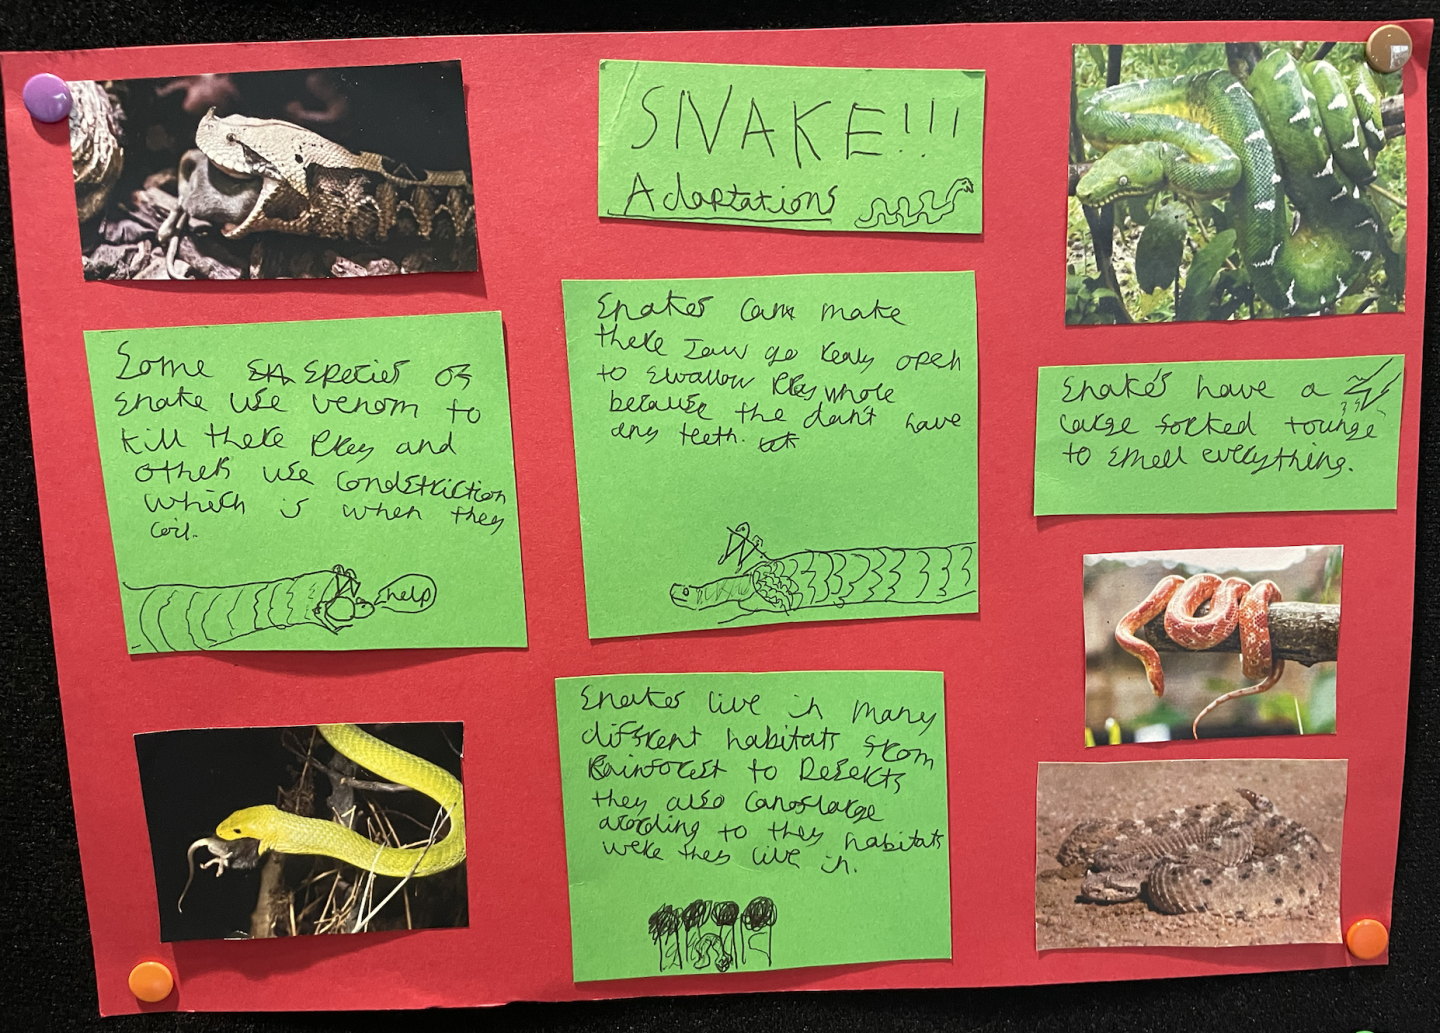 SNAKE!!!
Adaptations
Some species of
snake use venom to
kill there Prey and
others use Constriction
which is when they
coil.
help
Snakes can make
there Jaw go realy open
to swallow Prey whole
because the don't have
any teeth.
Snakes have a
large forked tounge
to smell everything.
Snakes live in many
different habitats from
Rainforest to Deserts
they also
acording to they habitats
were they live in.